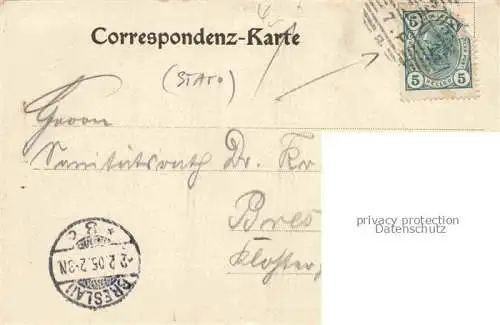 Correspondenz-Karte
(STAT.)
5 5
Herrn
Sanitätsrath Dr. Kr
Bres
Kloster
privacy protection
Datenschutz
* 8 c
2.2.05.2-3N.
BRESLAU